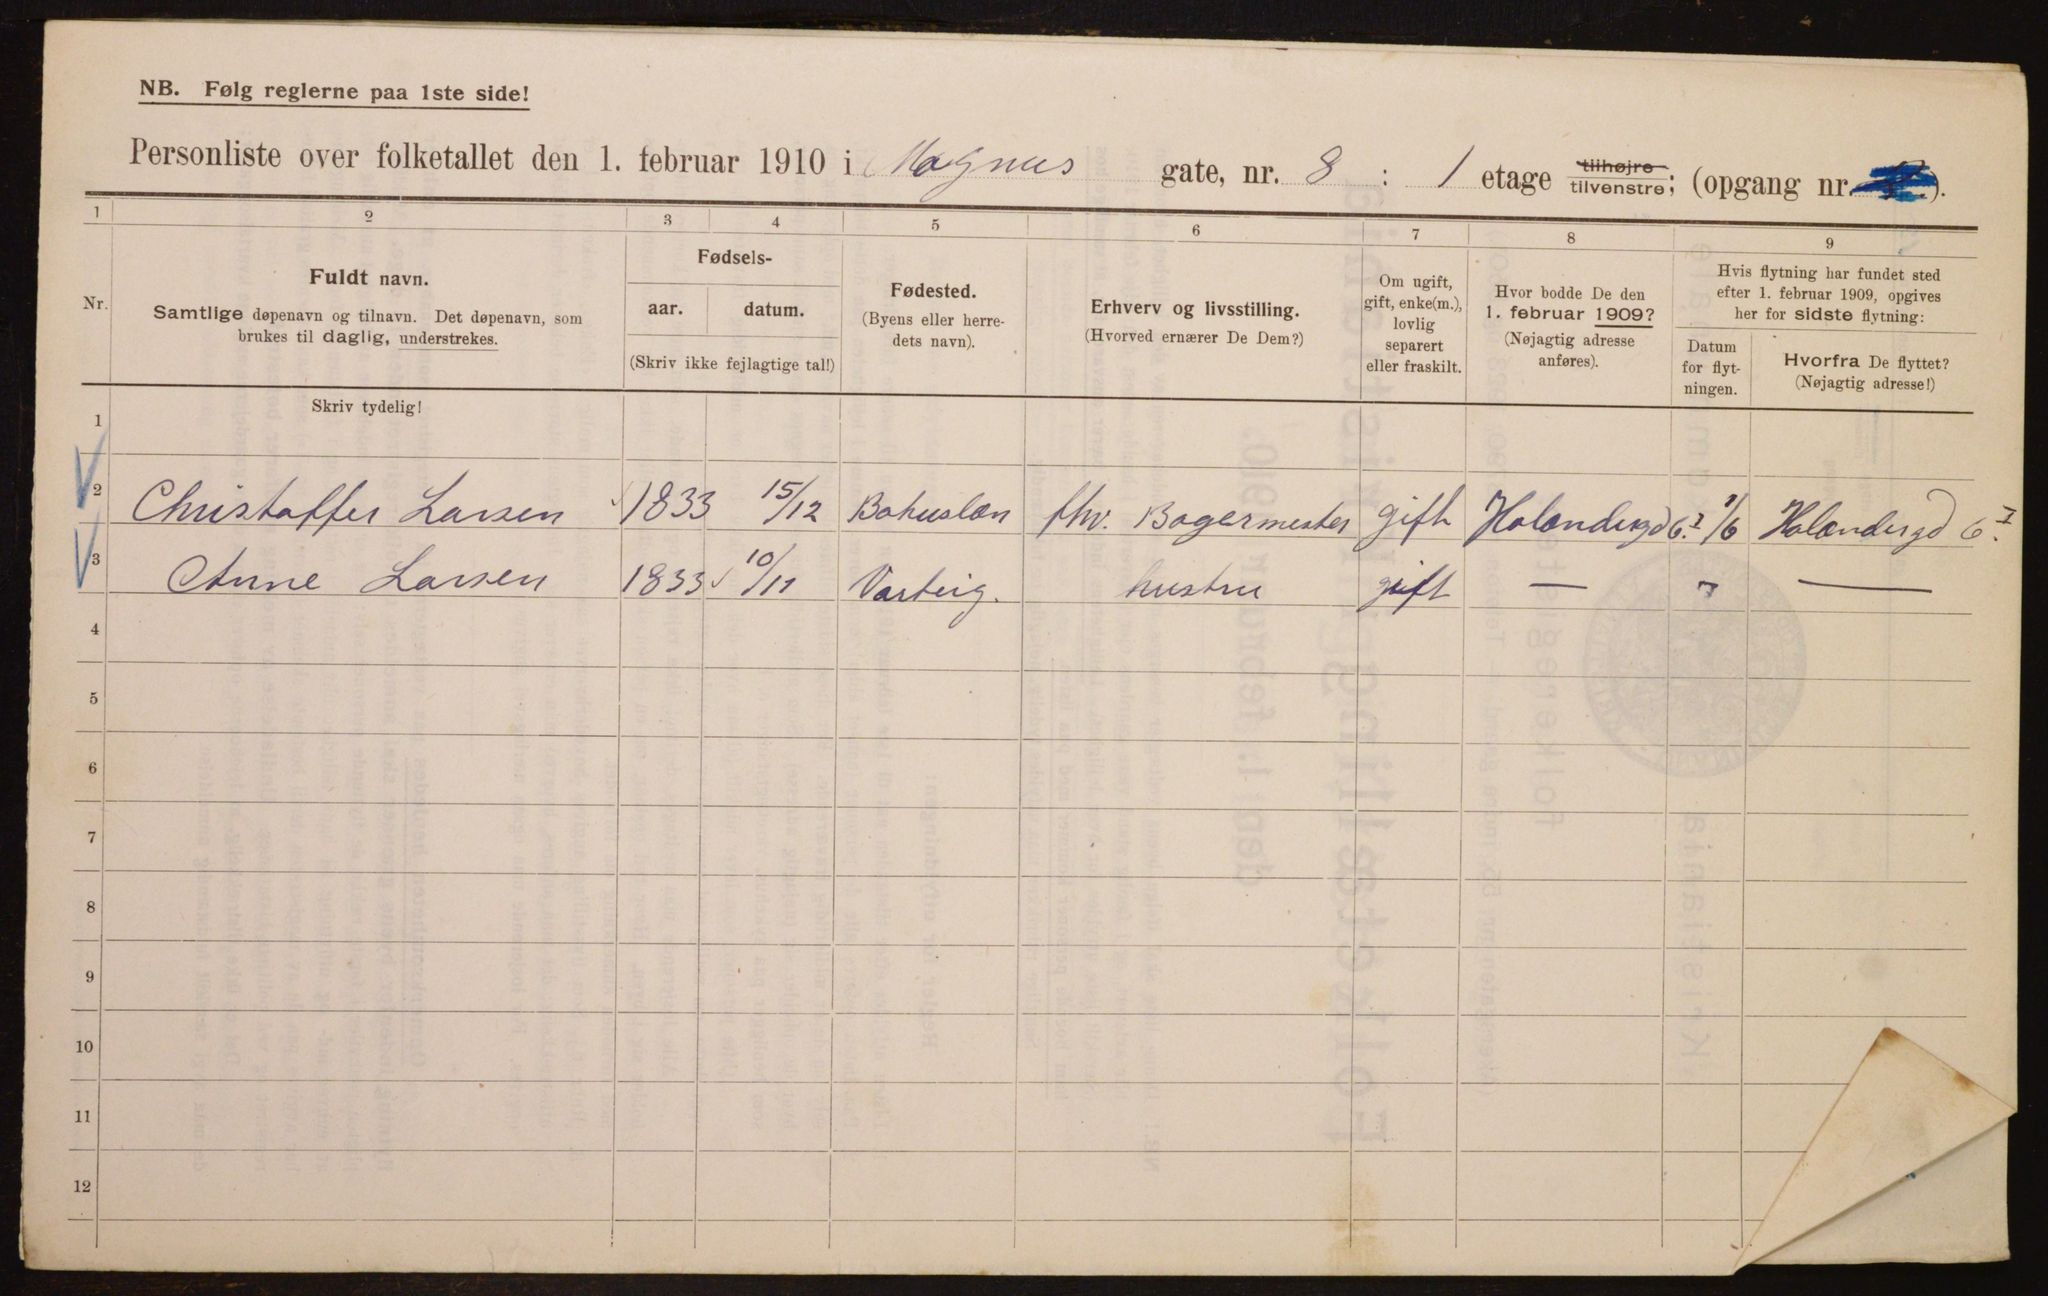 NB. Følg reglerne paa 1ste side!
Personliste over folketallet den 1. februar 1910 i Magnus gate, nr. 8 : 1 etage tilhøjre tilvenstre; (opgang nr. ).
1 2 3 4 5 6 7 8 9
Nr.
Fuldt navn.
Samtlige døpenavn og tilnavn. Det døpenavn, som
brukes til daglig, understrekes.
Fødsels-
aar. datum.
(Skriv ikke fejlagtige tal!)
Fødested.
(Byens eller herre-
dets navn).
Erhverv og livsstilling.
(Hvorved ernærer De Dem?)
Om ugift,
gift, enke(m.),
lovlig
separert
eller fraskilt.
Hvor bodde De den
1. februar 1909?
(Nøjagtig adresse
anføres).
Hvis flytning har fundet sted
efter 1. februar 1909, opgives
her for sidste flytning:
Datum
for flyt-
ningen.
Hvorfra De flyttet?
(Nøjagtig adresse!)
Skriv tydelig!
1
2 Christoffer Larsen 1833 15/12 Bohuslæn fhv. Bagermester gift Holændergd 6 I 1/6 Holændergd 6 I
3 Anne Larsen 1833 10/11 Varteig. hustru gift — " —
4
5
6
7
8
9
10
11
12